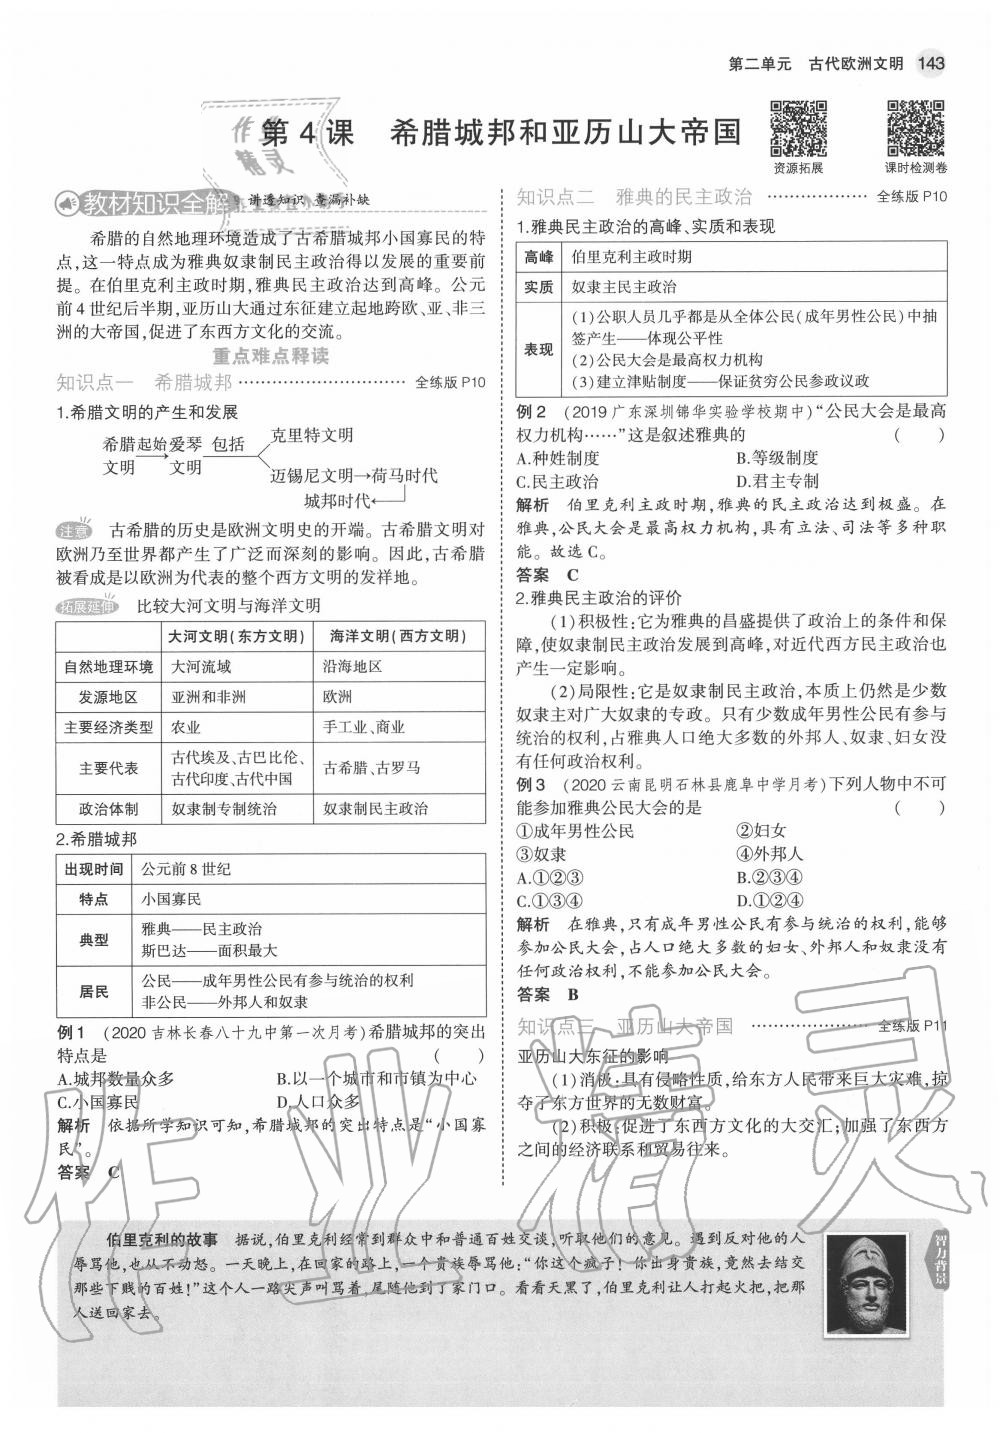 第二单元 古代欧洲文明 143
第 4 课 希腊城邦和亚历山大帝国
资源拓展
课时检测卷
教材知识全解 讲透知识 查漏补缺
希腊的自然地理环境造成了古希腊城邦小国寡民的特
点,这一特点成为雅典奴隶制民主政治得以发展的重要前
提。在伯里克利主政时期,雅典民主政治达到高峰。公元
前4世纪后半期,亚历山大通过东征建立起地跨欧、亚、非三
洲的大帝国,促进了东西方文化的交流。
重点难点释读
知识点一 希腊城邦 ………………………… 全练版 P10
1.希腊文明的产生和发展
希腊 起始 爱琴 包括
文明 文明
克里特文明
迈锡尼文明→荷马时代
城邦时代
注意 古希腊的历史是欧洲文明史的开端。古希腊文明对
欧洲乃至世界都产生了广泛而深刻的影响。因此,古希腊
被看成是以欧洲为代表的整个西方文明的发祥地。
拓展延伸 比较大河文明与海洋文明
大河文明(东方文明) 海洋文明(西方文明)
自然地理环境 大河流域 沿海地区
发源地区 亚洲和非洲 欧洲
主要经济类型 农业 手工业、商业
主要代表 古代埃及、古巴比伦、
古代印度、古代中国 古希腊、古罗马
政治体制 奴隶制专制统治 奴隶制民主政治
2.希腊城邦
出现时间 公元前8世纪
特点 小国寡民
典型 雅典——民主政治
斯巴达——面积最大
居民 公民——成年男性公民有参与统治的权利
非公民——外邦人和奴隶
例1 (2020吉林长春八十九中第一次月考)希腊城邦的突出
特点是 ( )
A.城邦数量众多 B.以一个城市和市镇为中心
C.小国寡民 D.人口众多
解析 依据所学知识可知,希腊城邦的突出特点是“小国寡
民”。
答案 C
知识点二 雅典的民主政治 ……………… 全练版 P10
1.雅典民主政治的高峰、实质和表现
高峰 伯里克利主政时期
实质 奴隶主民主政治
表现 (1)公职人员几乎都是从全体公民(成年男性公民)中抽
签产生——体现公平性
(2)公民大会是最高权力机构
(3)建立津贴制度——保证贫穷公民参政议政
例2 (2019广东深圳锦华实验学校期中)“公民大会是最高
权力机构……”这是叙述雅典的 ( )
A.种姓制度 B.等级制度
C.民主政治 D.君主专制
解析 伯里克利主政时期,雅典的民主政治达到极盛。在
雅典,公民大会是最高权力机构,具有立法、司法等多种职
能。故选C。
答案 C
2.雅典民主政治的评价
(1)积极性:它为雅典的昌盛提供了政治上的条件和保
障,使奴隶制民主政治发展到高峰,对近代西方民主政治也
产生一定影响。
(2)局限性:它是奴隶制民主政治,本质上仍然是少数
奴隶主对广大奴隶的专政。只有少数成年男性公民有参与
统治的权利,占雅典人口绝大多数的外邦人、奴隶、妇女没
有任何政治权利。
例3 (2020云南昆明石林县鹿阜中学月考)下列人物中不可
能参加雅典公民大会的是 ( )
①成年男性公民 ②妇女
③奴隶 ④外邦人
A.①②③ B.②③④
C.①③④ D.①②④
解析 在雅典,只有成年男性公民有参与统治的权利,能够
参加公民大会,占人口绝大多数的妇女、外邦人和奴隶没有
任何政治权利,不能参加公民大会。
答案 B
知识点三 亚历山大帝国 ………………… 全练版 P11
亚历山大东征的影响
(1)消极:具有侵略性质,给东方人民带来巨大灾难,掠
夺了东方世界的无数财富。
(2)积极:促进了东西方文化的大交汇;加强了东西方
之间的经济联系和贸易往来。
伯里克利的故事 据说,伯里克利经常到群众中和普通百姓交谈,听取他们的意见。遇到反对他的人
辱骂他,也从不动怒。一天晚上,在回家的路上,一个贵族辱骂他:“你这个疯子!你出身贵族,竟然去结交
那些下贱的百姓!”这个人一路尖声叫骂着,尾随他到了家门口。看看天黑了,伯里克利让人打起火把,把那
人送回家去。
智力背景
作业精灵
作业
精灵